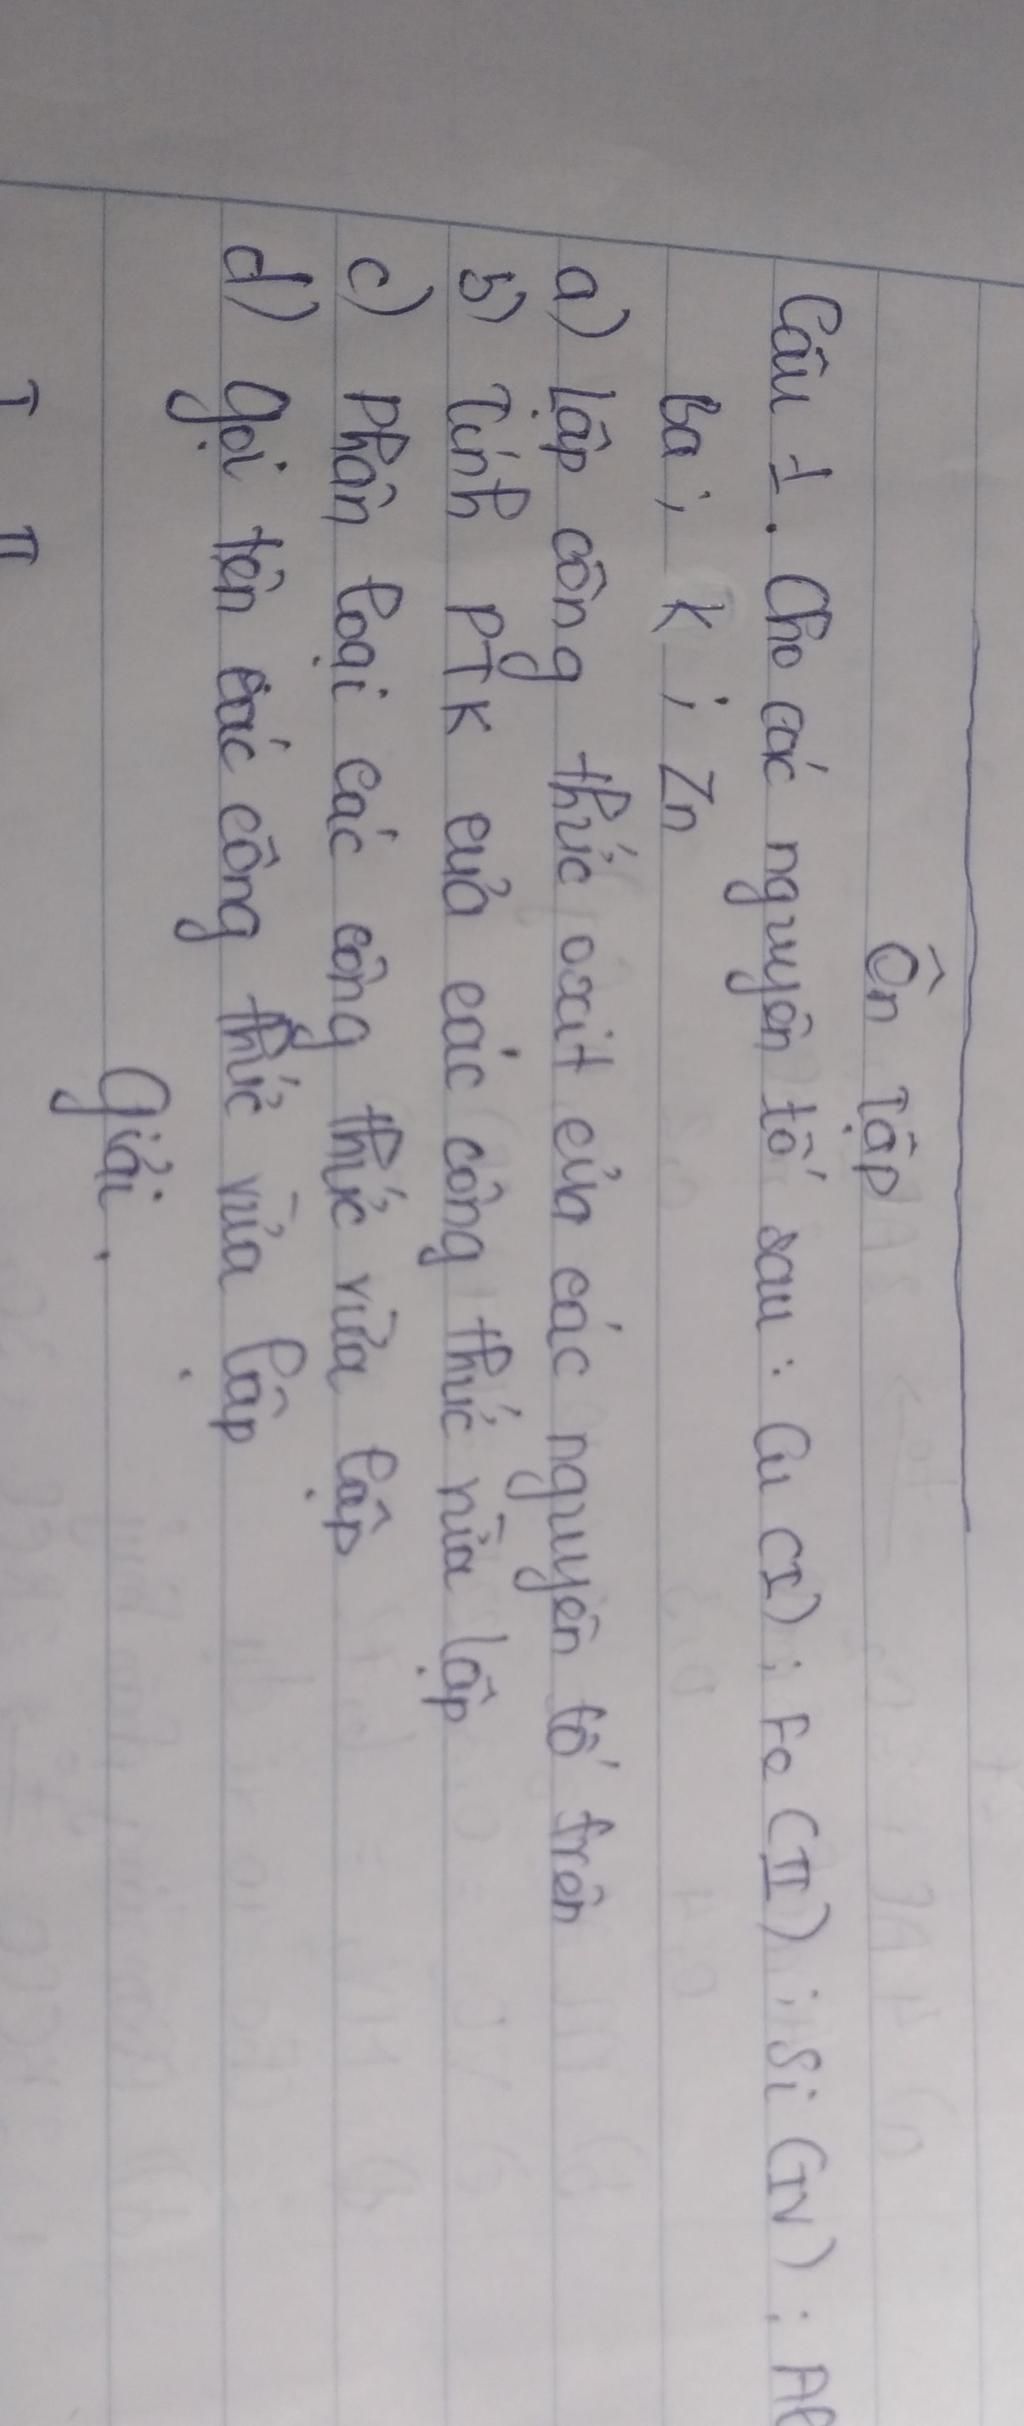 Ôn Tập
Câu 1. Cho các nguyên tố sau: Cu (I); Fe (II); Si (IV); Al
Ba; K; Zn
a) lập công thức oxit của các nguyên tố trên
b) Tính PTK của các công thức vừa lập
c) Phân loại các công thức vừa lập
d) Gọi tên các công thức vừa lập
Giải.
I II